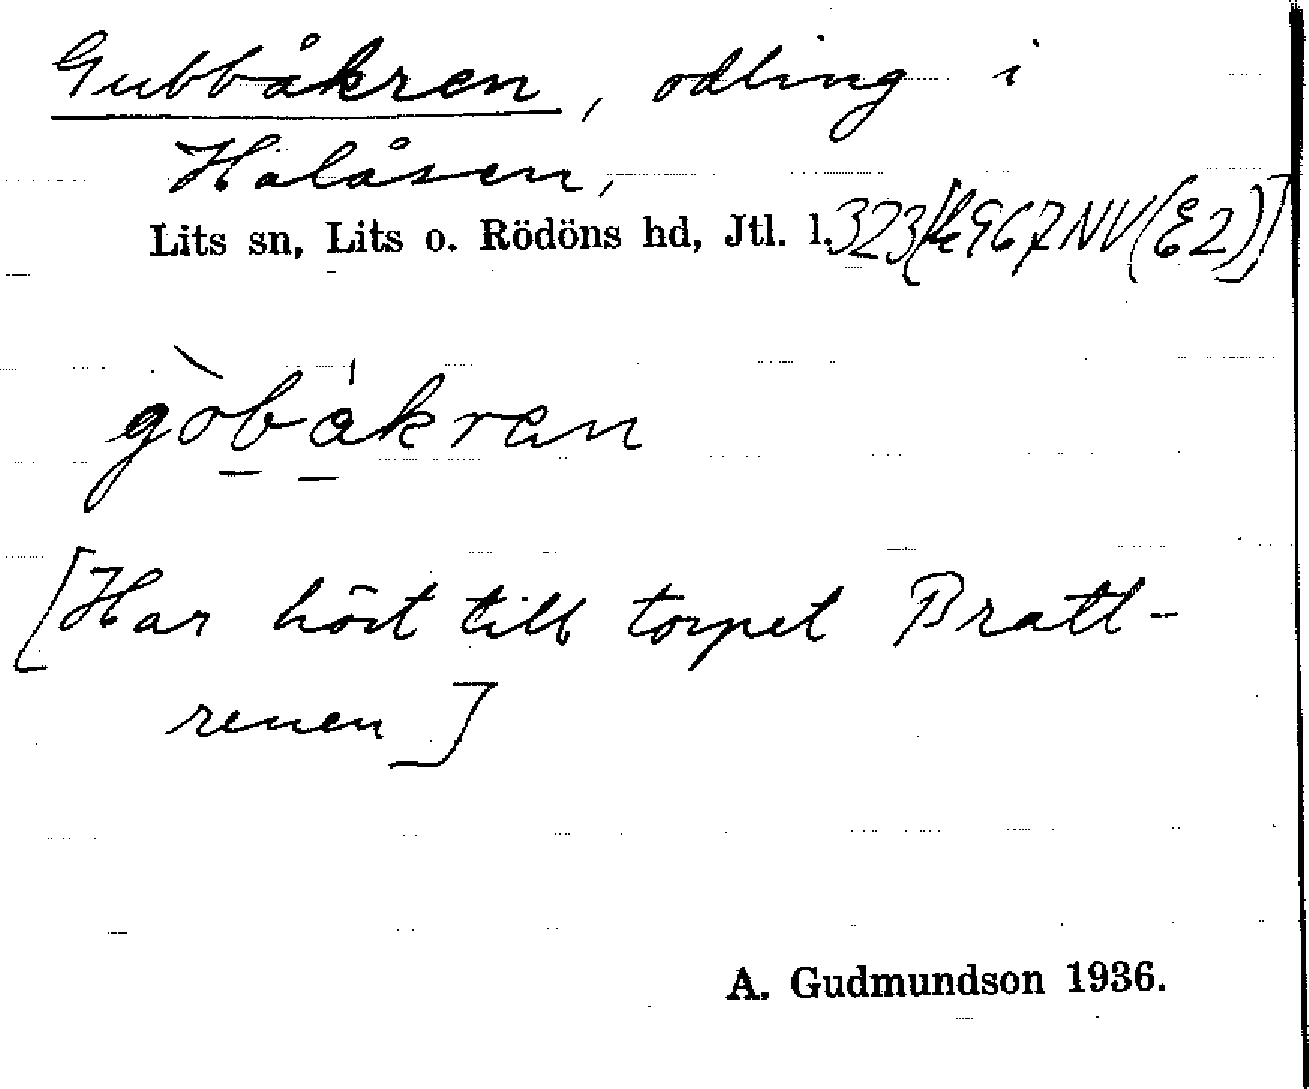 Gubbåkren, odling i
Halåsen,
Lits sn, Lits o. Rödöns hd, Jtl. l. 323 [k967NV(E2)]
gòbákran
[Har hört till torpet Bratt-
renen]
A. Gudmundson 1936.